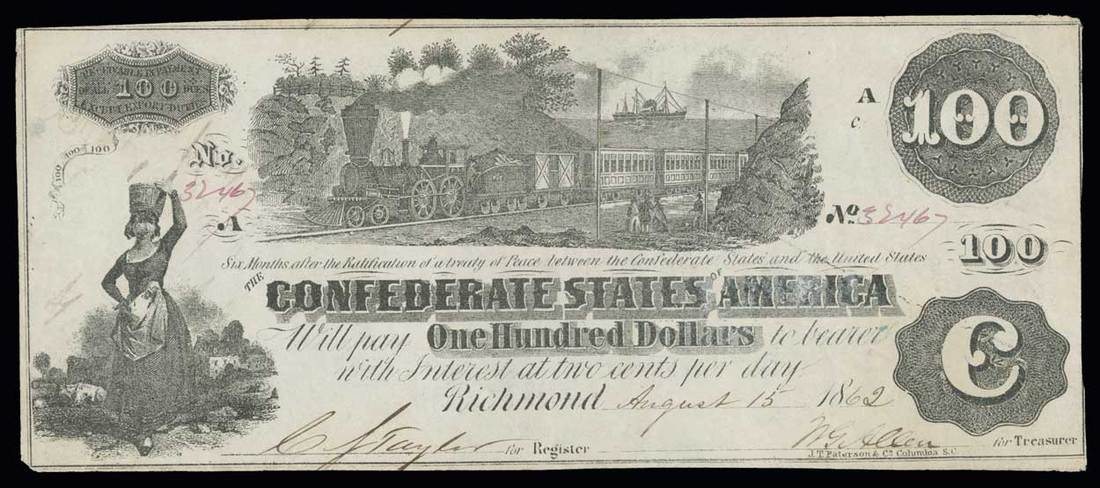 RECEIVABLE IN PAYMENT
OF ALL 100 DUES
EXCEPT EXPORT DUTIES
100 100 100
No. 32467
A
A
c
100
No 32467
100
Six Months after the Ratification of a treaty of Peace between the Confederate States and the United States
THE CONFEDERATE STATES OF AMERICA
Will pay One Hundred Dollars to bearer
with Interest at two cents per day
Richmond August 15 1862
C
C J Taylor for Register
W G Allen for Treasurer
J. T. Paterson & Co Columbia S.C.